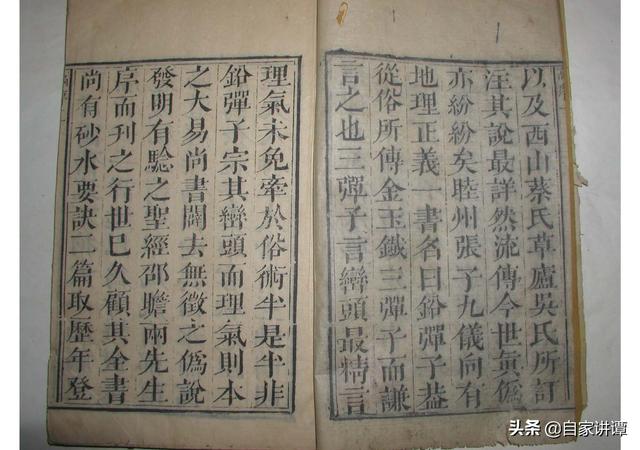 以及西山蔡氏草廬吳氏所訂
注其說最詳然流傳今世眞僞
亦紛紛矣睦州張子九儀向有
地理正義一書名曰鉛彈子葢
從俗所傳金玉鐵三彈子而謙
言之也三彈子言巒頭最精言
理氣未免牽於俗術半是半非
鉛彈子宗其巒頭而理氣則本
之大易尚書闢去無徵之僞說
發明有騐之聖經邵瞻兩先生
序而刋之行世已久顧其全書
尚有砂水要訣二篇取歷年登
头条 @自家讲谭